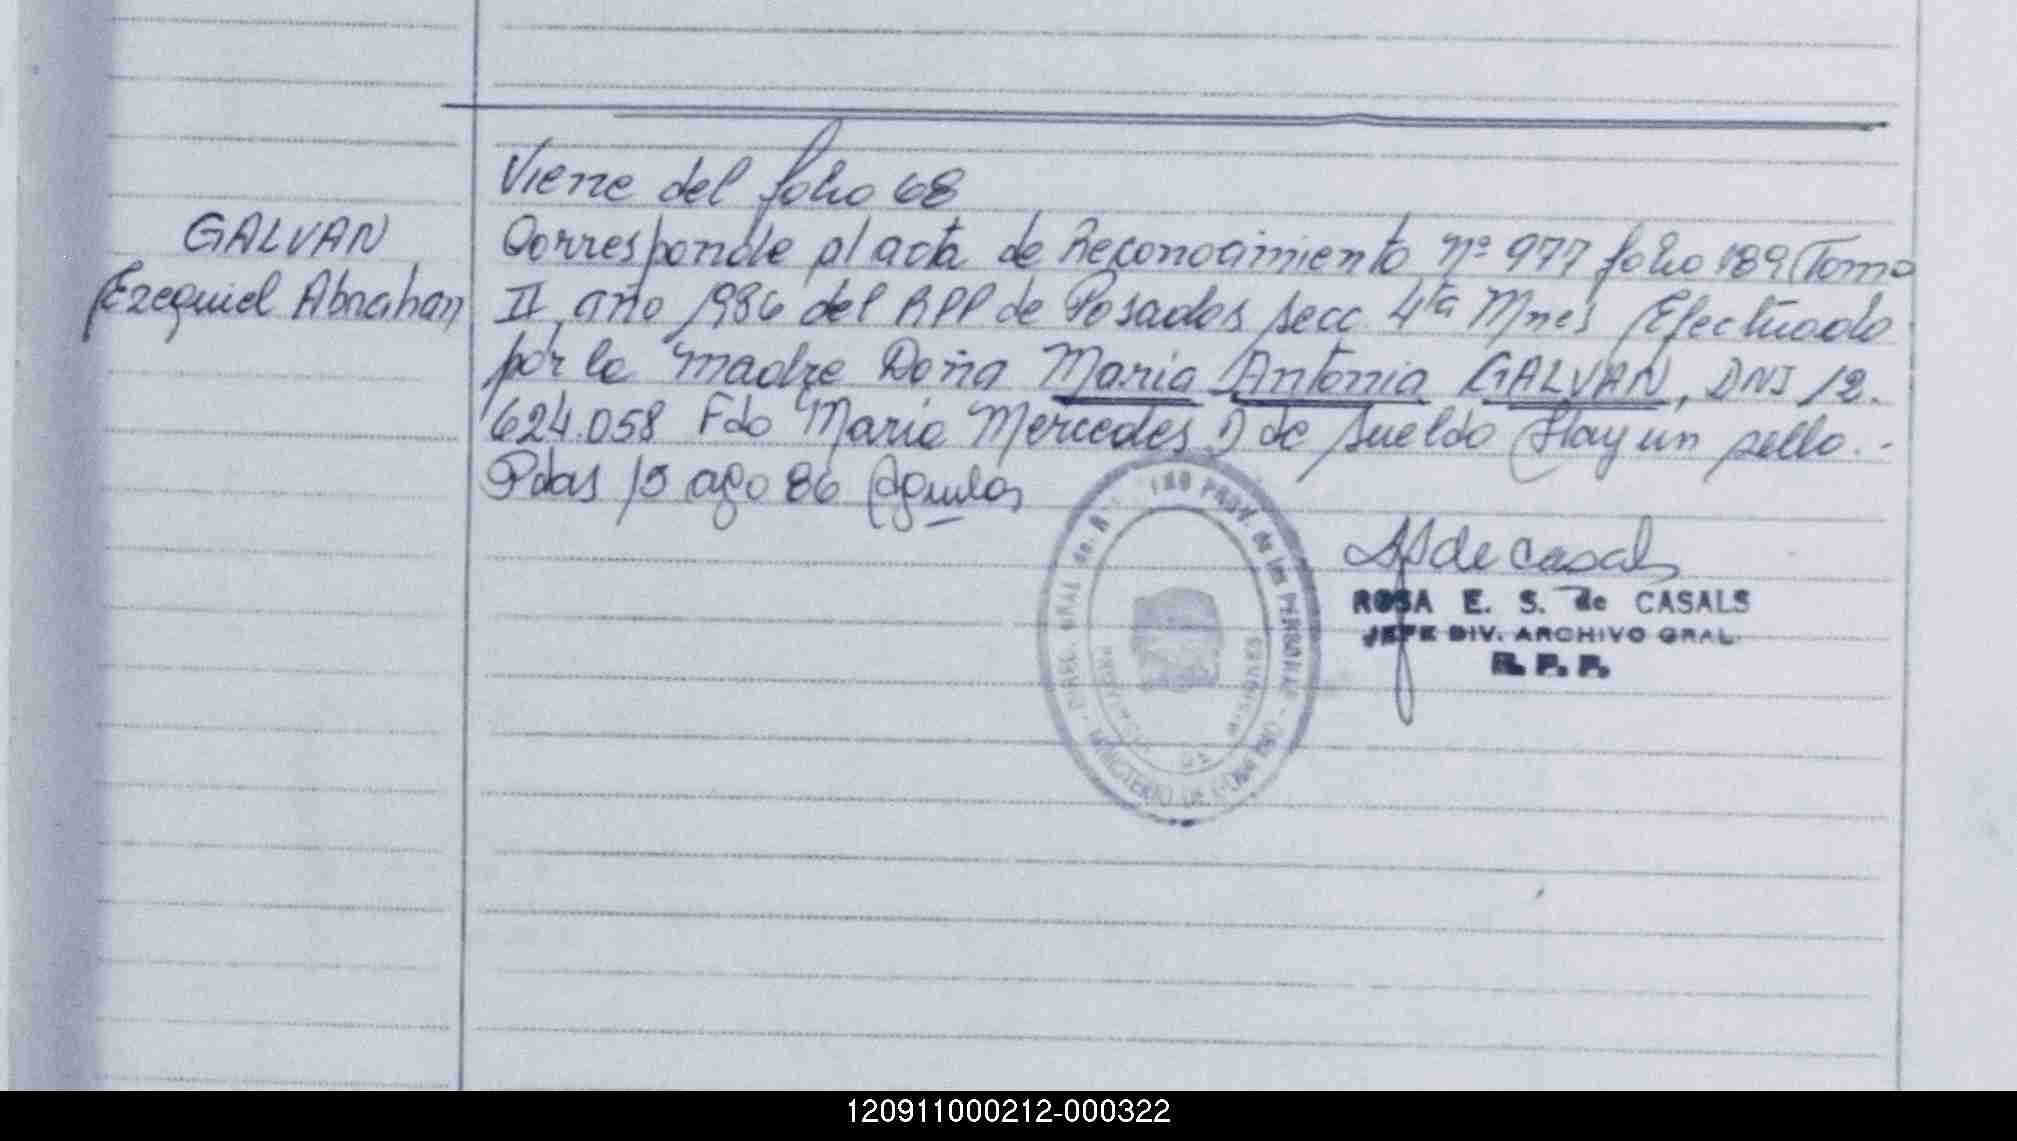 Viene del folio 68
GALVAN
Ezequiel Abrahan
Corresponde al acta de Reconocimiento nº 977 folio 189 Tomo
II, año 1986 del RPP de Posadas secc. 4ta Mnes Efectuado
por la madre Doña Maria Antonia GALVAN, DNI 12.
624.058 Fdo Maria Mercedes D de Sueldo Hay un sello.-
Pdas 15 ago 86
de Casals
ROSA E. S. de CASALS
JEFE DIV. ARCHIVO GRAL.
R. P. P.
DIREC. GRAL de PROV. de las PERSONAS
MINISTERIO DE GOBIERNO
PROVINCIA DE MISIONES
120911000212-000322